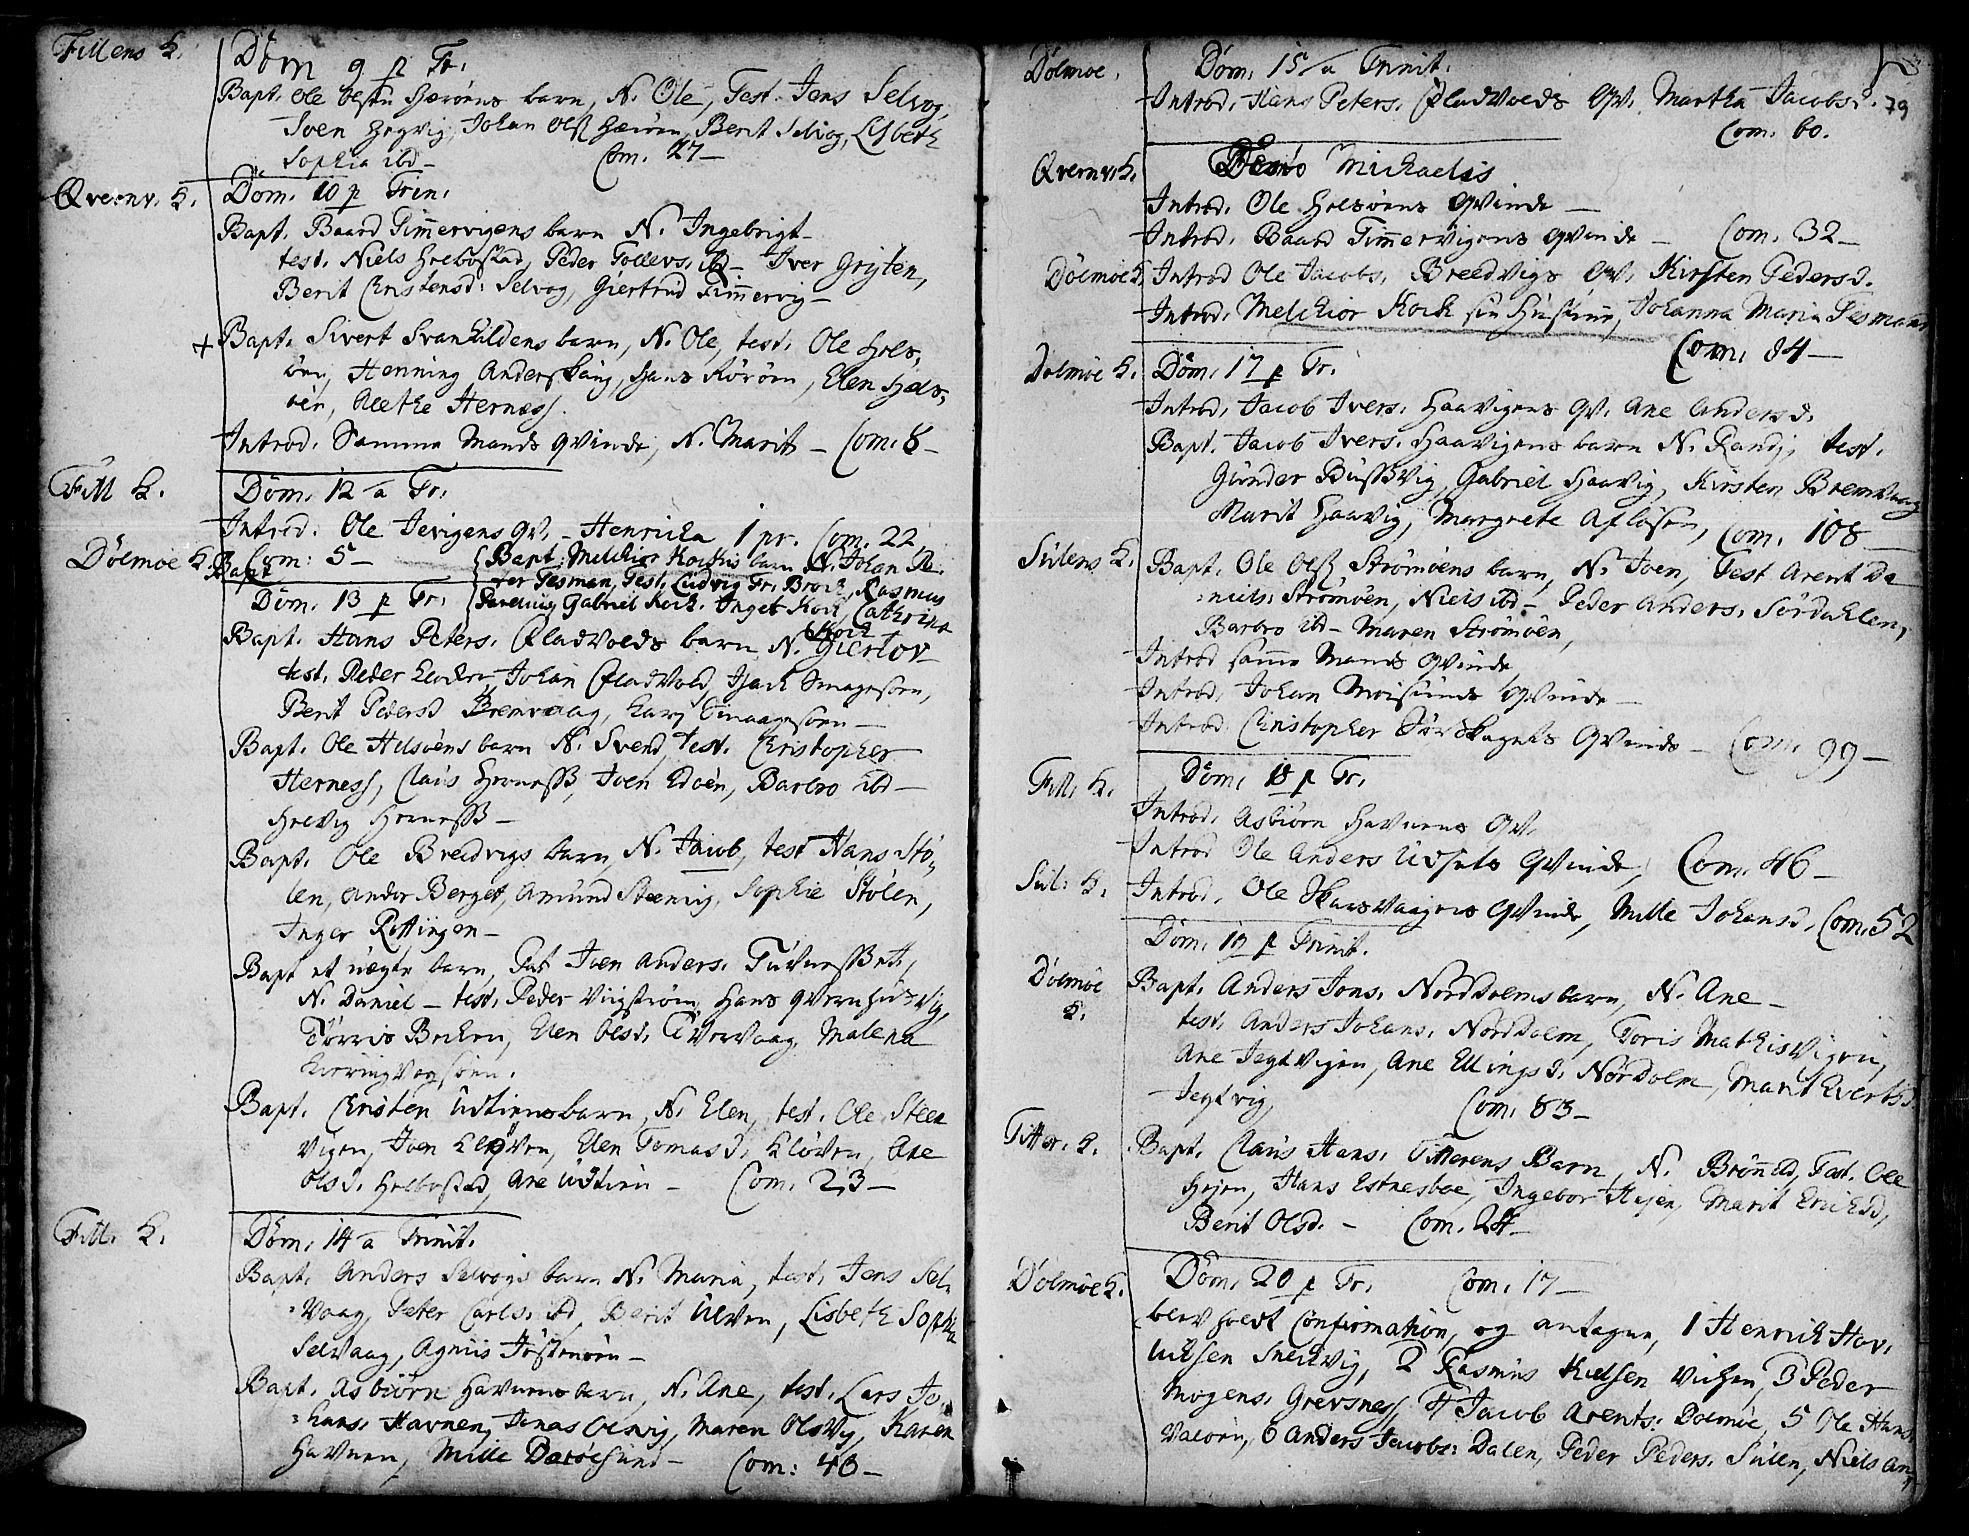 Fillens K. Dom 9 p Tr.
Bapt. Ole Olsøn Hærøens barn, N. Ole, Test. Jens Selvog,
Sven Hegvig, Johan Olss Hærøen, Berit Selvog, Lisbeth
Sophia ibd – Com. 27 –
Qvernv. K. Dom. 10 p Trin.
Bapt. Baard Timmervigens barn N. Ingebrigt –
test. Niels Helbostad, Peder Tollevs. ibd – Iver Gryten,
Berit Christensd: Selvog, Giertrud Timmervig –
+ Bapt. Sivert Svanhildens barn, N. Ole, test. Ole Hels-
øen, Henning Anderskaug, Hans Kørøen, Elen Hels-
øen, Alethe Herness.
Introd. Samme Mands Qvinde, N. Marit – Com. 8 –
Fill K. Dom. 12 a Tr.
Introd. Ole Jevigens Qv. – Henricka 1 pr. Com. 22
Dolmøe K. Com: 5 – Bapt. Melchior Kochis barn N. Johan Pe-
ter Tesman, Test. Ludvig Fr. Broch, Rasmus
Dom. 13 p Tr. Parelius, Gabriel Koch. Ingeb. Koch, Cathrina
Koch
Bapt. Hans Peters. Fladvolds barn N. Giertov
test. Peder Johan Fladvold, Isach Smagesøen,
Berit Pedersd Bremvaag, Kari Smaagesøen –
Bapt. Ole Helsøens barn N. Svend, test. Christopher
Herness, Claus Herness, Joen Edøen, Barbro ibd –
Helvig Herness –
Bapt. Ole Breedvigs barn, N. Jacob, test Hans Stø-
len, Ander Berget, Amund Steenvig, Sophie Stølen,
Inger Rottingen –
Bapt et uægte barn, Fat Joen Anders. Tuvnesset,
N. Daniel – test. Peder Vingstrøm, Hans Qvernhusvig,
Tørris Becken, Elen Olsd. Tvervaag, Malena
Kierringvogsøen.
Bapt. Christen Udtiens barn, N. Elen, test. Ole Steen
vigen, Joen Kløven, Elen Tomasd. Kløven, Ane
Olsd. Helbostad, Ane Udtien – Com. 23 –
Fill. K. Dom. 14 a Trinit.
Bapt. Anders Selvogs barn N. Maria, test. Jens Sel-
vaag, Peter Carls. ibd, Berit Ulven, Lisbeth Sophia
Selvaag, Agniis Jøstenøen –
Bapt. Asbiørn Havnens barn, N. Ane, test. Lars Jo-
hans. Havnen, Jonas Olsvig, Maren Olsvig, Karen
Havnen, Mille Darøesund – Com: 40 –
Dolmøe. Dom. 15 a Trinit. 79
Introd. Hans Peters. Fladvolds Qv. Martha Jacobsd.
Com. 60.
Qvernv. K. Michaelis
Introd. Ole Helsøens Qvinde –
Introd. Baard Timmervigens Qvinde – Com. 32 –
Dolmøe K. Introd Ole Jacobs. Breedvigs Qv. Kirsten Pedersd.
Introd. Melchior Koch sin Hustrue, Johanna Maria Tesmann
Com. 84 –
Dolmøe K. Dom. 17 p Tr.
Introd. Jacob Ivers. Haavigens Qv. Ane Andersd.
Bapt. Jacob Ivers. Haavigens barn N. Randj, test.
Gunder Bussvig, Gabriel Haavig, Kirsten Bremvaag
Marit Haavig, Margrete Afløsen, Com. 108 –
Sulens K. Bapt. Ole Olss Strømøens barn, N. Joen, Test Arent Da-
niels. Strømøen, Niels ibd – Peder Anders. Sørdahlen,
Barbro ibd – Maren Strømøen,
Introd samme Mands Qvinde
Introd. Johan Moisunds Qvinde –
Introd. Christopher Sørskagets Qvinde – Com. 99 –
Fill. K. Dom. 18 p Tr.
Introd. Asbiørn Havnens Qv.
Introd Ole Anders Udsets Qvinde, Com. 46 –
Sul: K. Introd. Ole Skarsvaagens Qvinde, Mille Johansd. Com. 52
Dom. 19 p Trinit.
Dolmøe K. Bapt. Anders Jons. Norddolms barn, N. Ane –
test. Anders Johans. Norddolm, Toris Mathisvigen,
Ane Jegtvigen, Ane Ellingsd. Nordolm, Marit Evertsd.
Jegtvig, Com. 83 –
Titter. K. Bapt. Claus Hans. Titterens Barn, N. Brønild, Test. Ole
Hejen, Hans Estnesboe, Ingebor Hejen, Marit Erichsd,
Berit Olsd. – Com. 24 –
Dolmøe K. Dom. 20 p Tr. Com. 17 –
blev holdt Confirmation, og antagen, 1 Henrich Hav.
luchsen Sneckvig, 2 Rasmus Kielsen Vichen, 3 Peder
Mogens. Grevsness, 4 Jacob Arents. Dolmøe, 5 Ole Hans.
Valøen, 6 Anders Jacobs: Dalen, Peder Peders. Sulen, Niels An,